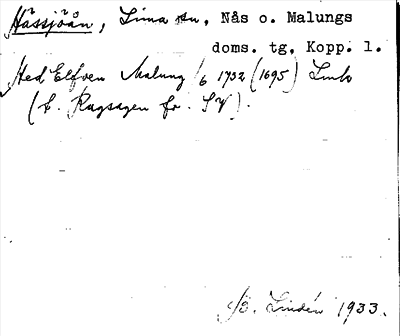 Hässjöån, Lima sn, Nås o. Malungs
doms. tg, Kopp. l.
Hed Elfven Malung 1/6 1732 (1695) Lmk
(t. Ragsagen fr. SV).
B. Lindén 1933.